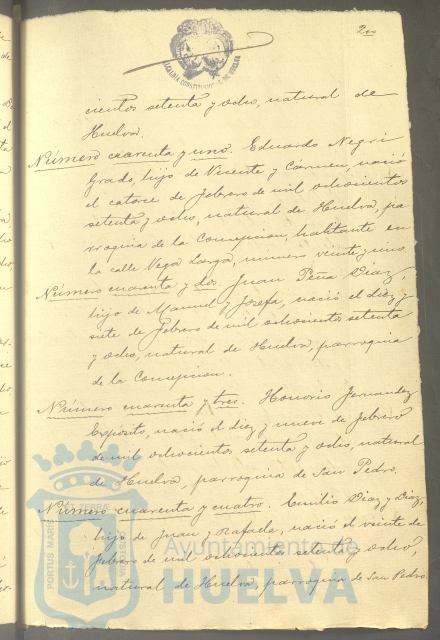 200
ALCALDIA CONSTITUCIONAL DE HUELVA
cientos setenta y ocho, natural de
Huelva.
Número cuarenta y uno. Eduardo Negri
Grado, hijo de Vicente y Cármen, nació
el catorce de Febrero de mil ochocientos
setenta y ocho, natural de Huelva, pa
rroquia de la Concepcion, habitante en
la calle Vega Larga, número veinte y uno
Número cuarenta y dos. Juan Peña Diaz,
hijo de Manuel y Josefa, nació el diez y
siete de Febrero de mil ochocientos setenta
y ocho, natural de Huelva, parroquia
de la Concepcion.
Número cuarenta y tres. Honorio Fernandez
Expósito, nació el diez y nueve de Febrero
de mil ochocientos setenta y ocho, natural
de Huelva, parroquia de San Pedro.
Número cuarenta y cuatro. Emilio Diaz y Diaz,
hijo de Juan y Rafaela, nació el veinte de
Febrero de mil ochocientos setenta y ocho,
natural de Huelva, parroquia de San Pedro.
PORTUS MARIS ET TERRÆ CUSTODIA
Ayuntamiento de
HUELVA